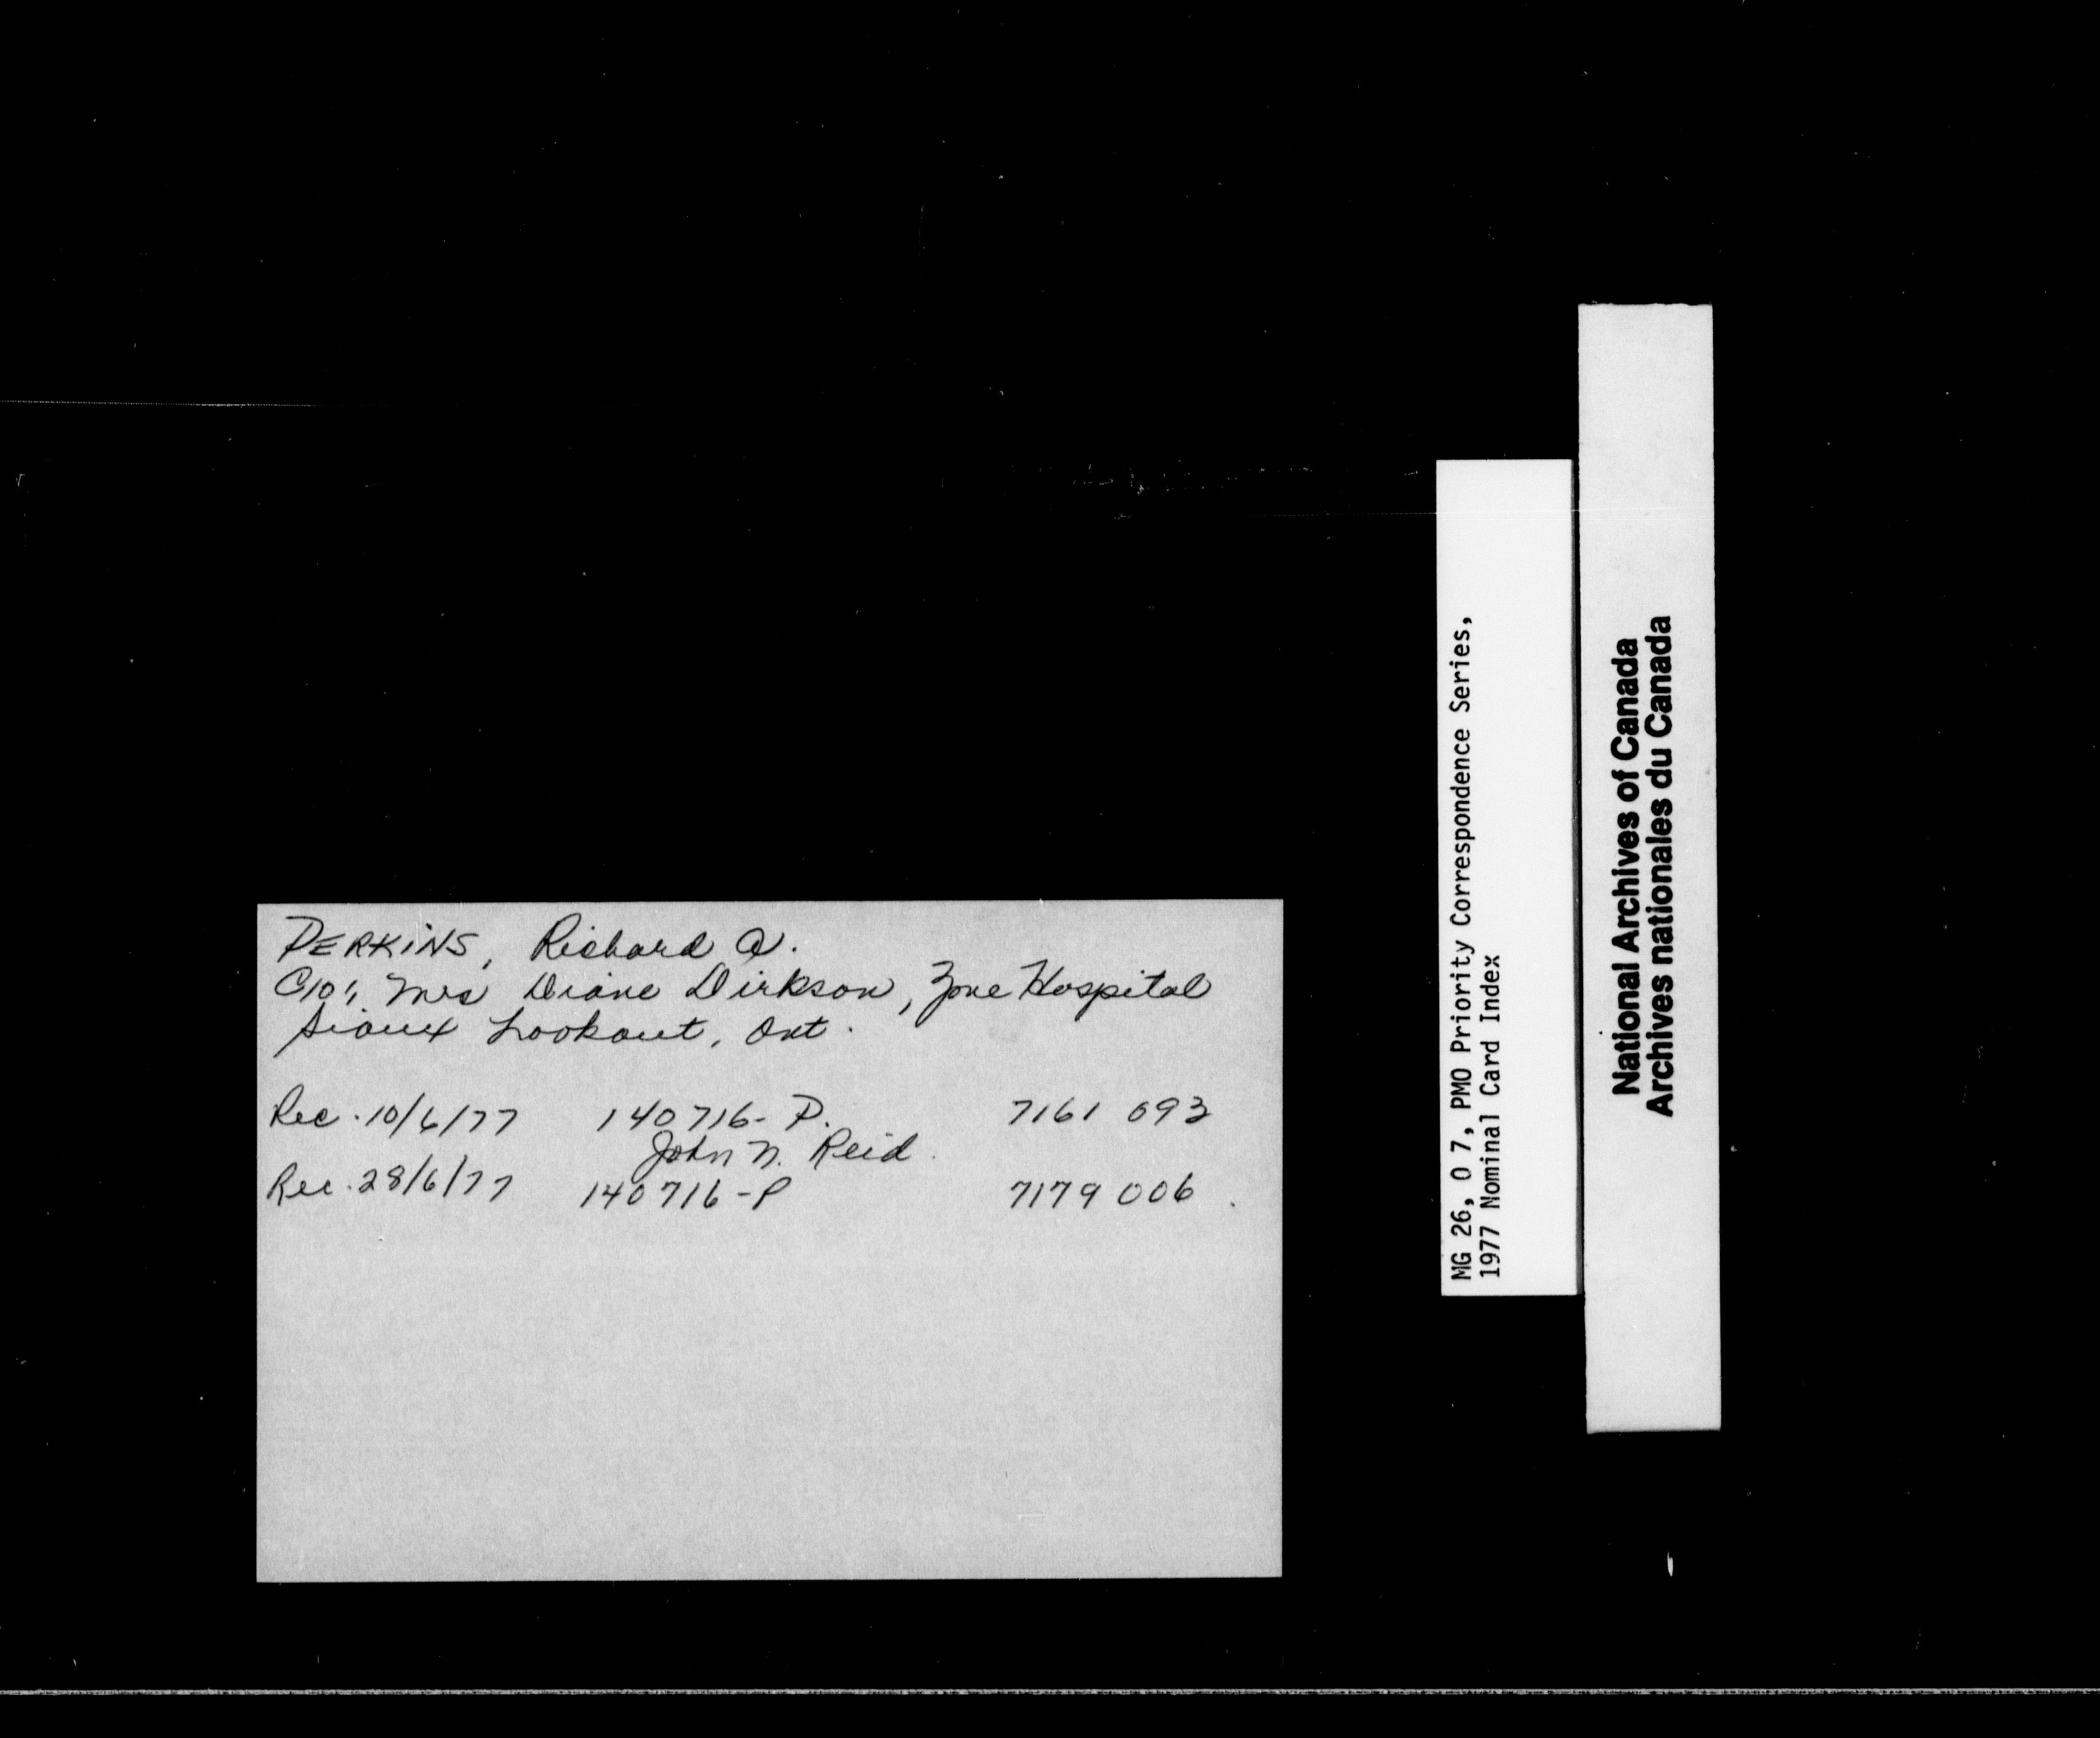 PERKINS, Richard A.
C/o: Mrs Diane Dirkson, Zone Hospital
Sioux Lookout, Ont.
Rec. 10/6/77 140716-P. 7161 093
John M. Reid.
Rec. 28/6/77 140716-P 7179 006.
MG 26, O 7, PMO Priority Correspondence Series,
1977 Nominal Card Index
National Archives of Canada
Archives nationales du Canada